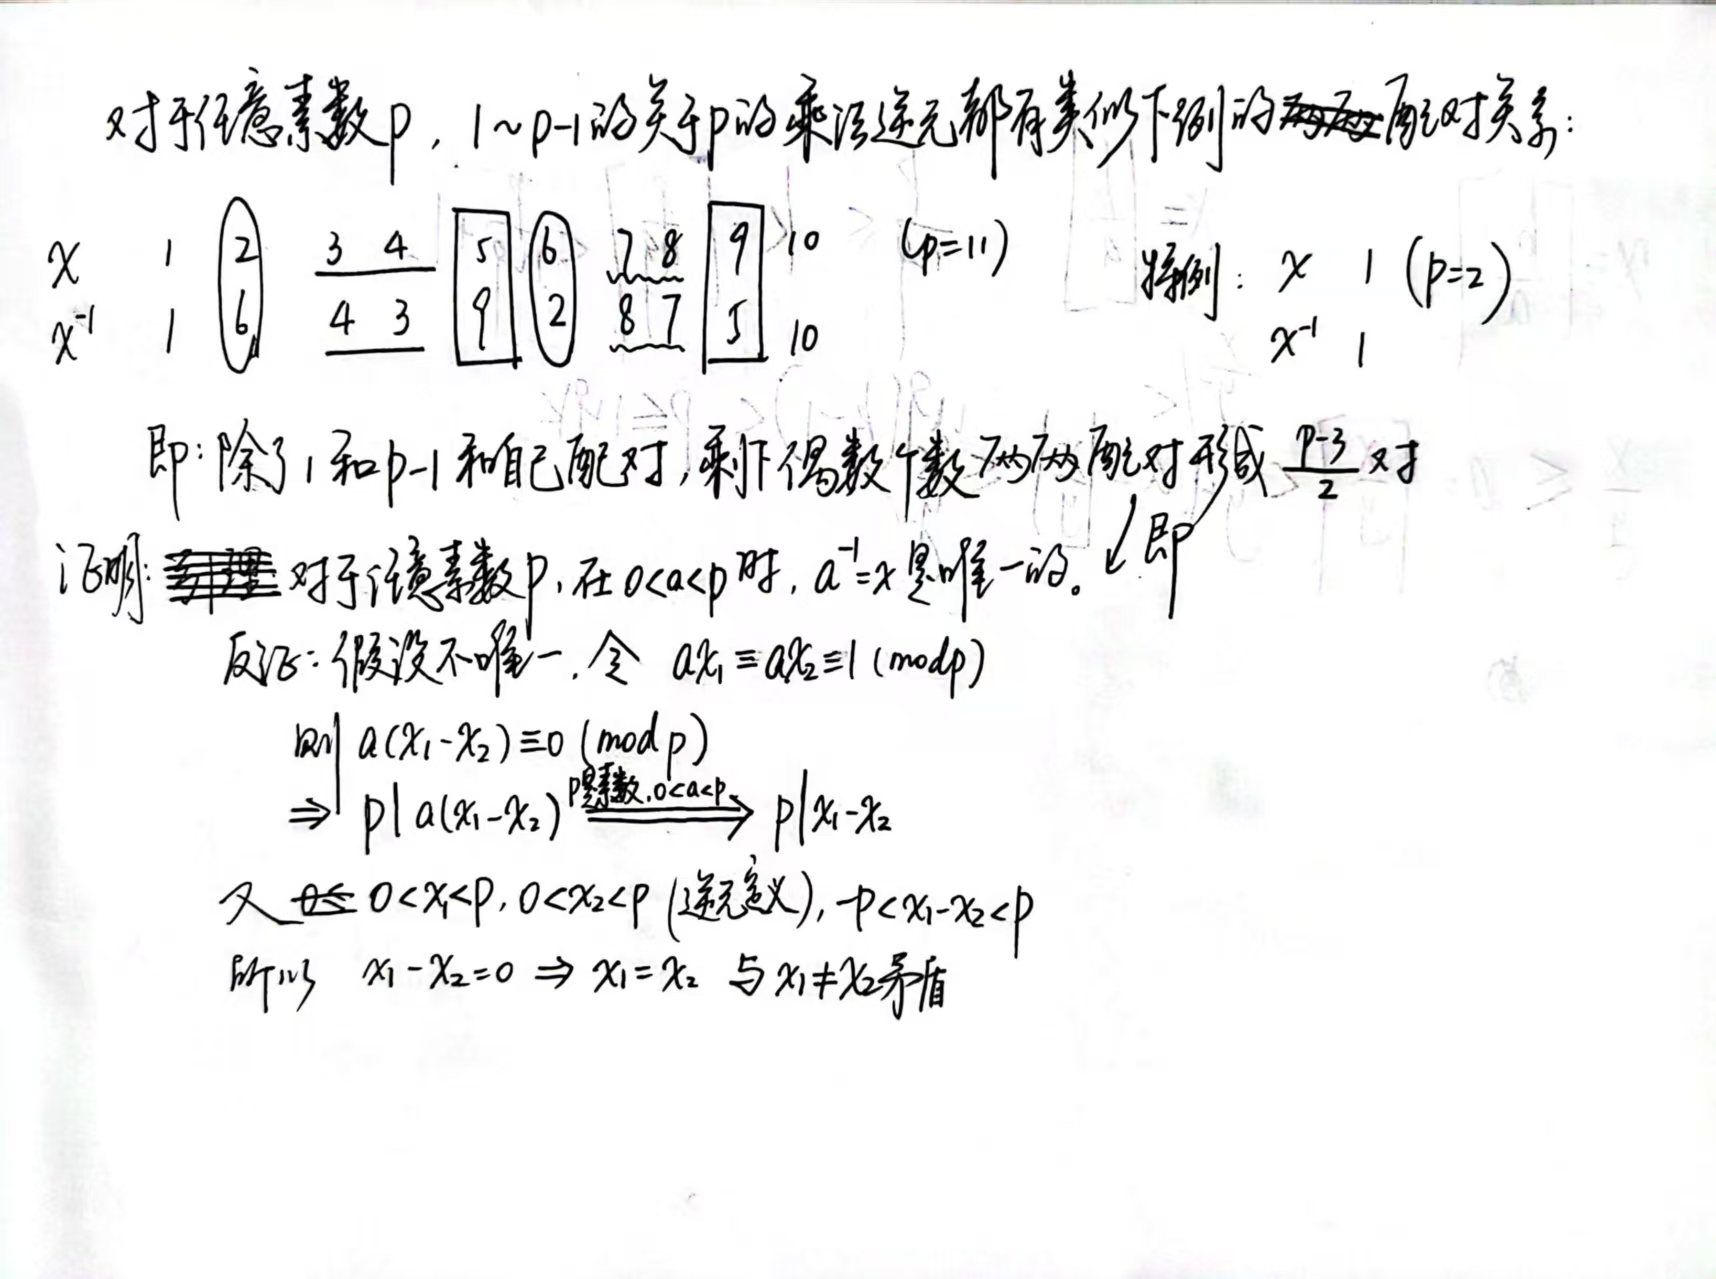 对于任意素数p，1~p-1的关于p的乘法逆元都有类似下例的配对关系：
x 1 2 3 4 5 6 7 8 9 10 (p=11)
x⁻¹ 1 6 4 3 9 2 8 7 5 10
特例： x 1 (p=2)
x⁻¹ 1
即：除了1和p-1和自己配对，剩下偶数个数两两配对形成 (p-3)/2 对
证明： 对于任意素数p，在0<a<p时，a⁻¹=x是唯一的。 ↙即
反证：假设不唯一，令 ax₁≡ax₂≡1 (mod p)
则 a(x₁-x₂)≡0 (mod p)
⇒ p|a(x₁-x₂) p是素数，0<a<p ⇒ p|x₁-x₂
又 0<x₁<p，0<x₂<p (逆元定义)，-p<x₁-x₂<p
所以 x₁-x₂=0 ⇒ x₁=x₂ 与x₁≠x₂矛盾